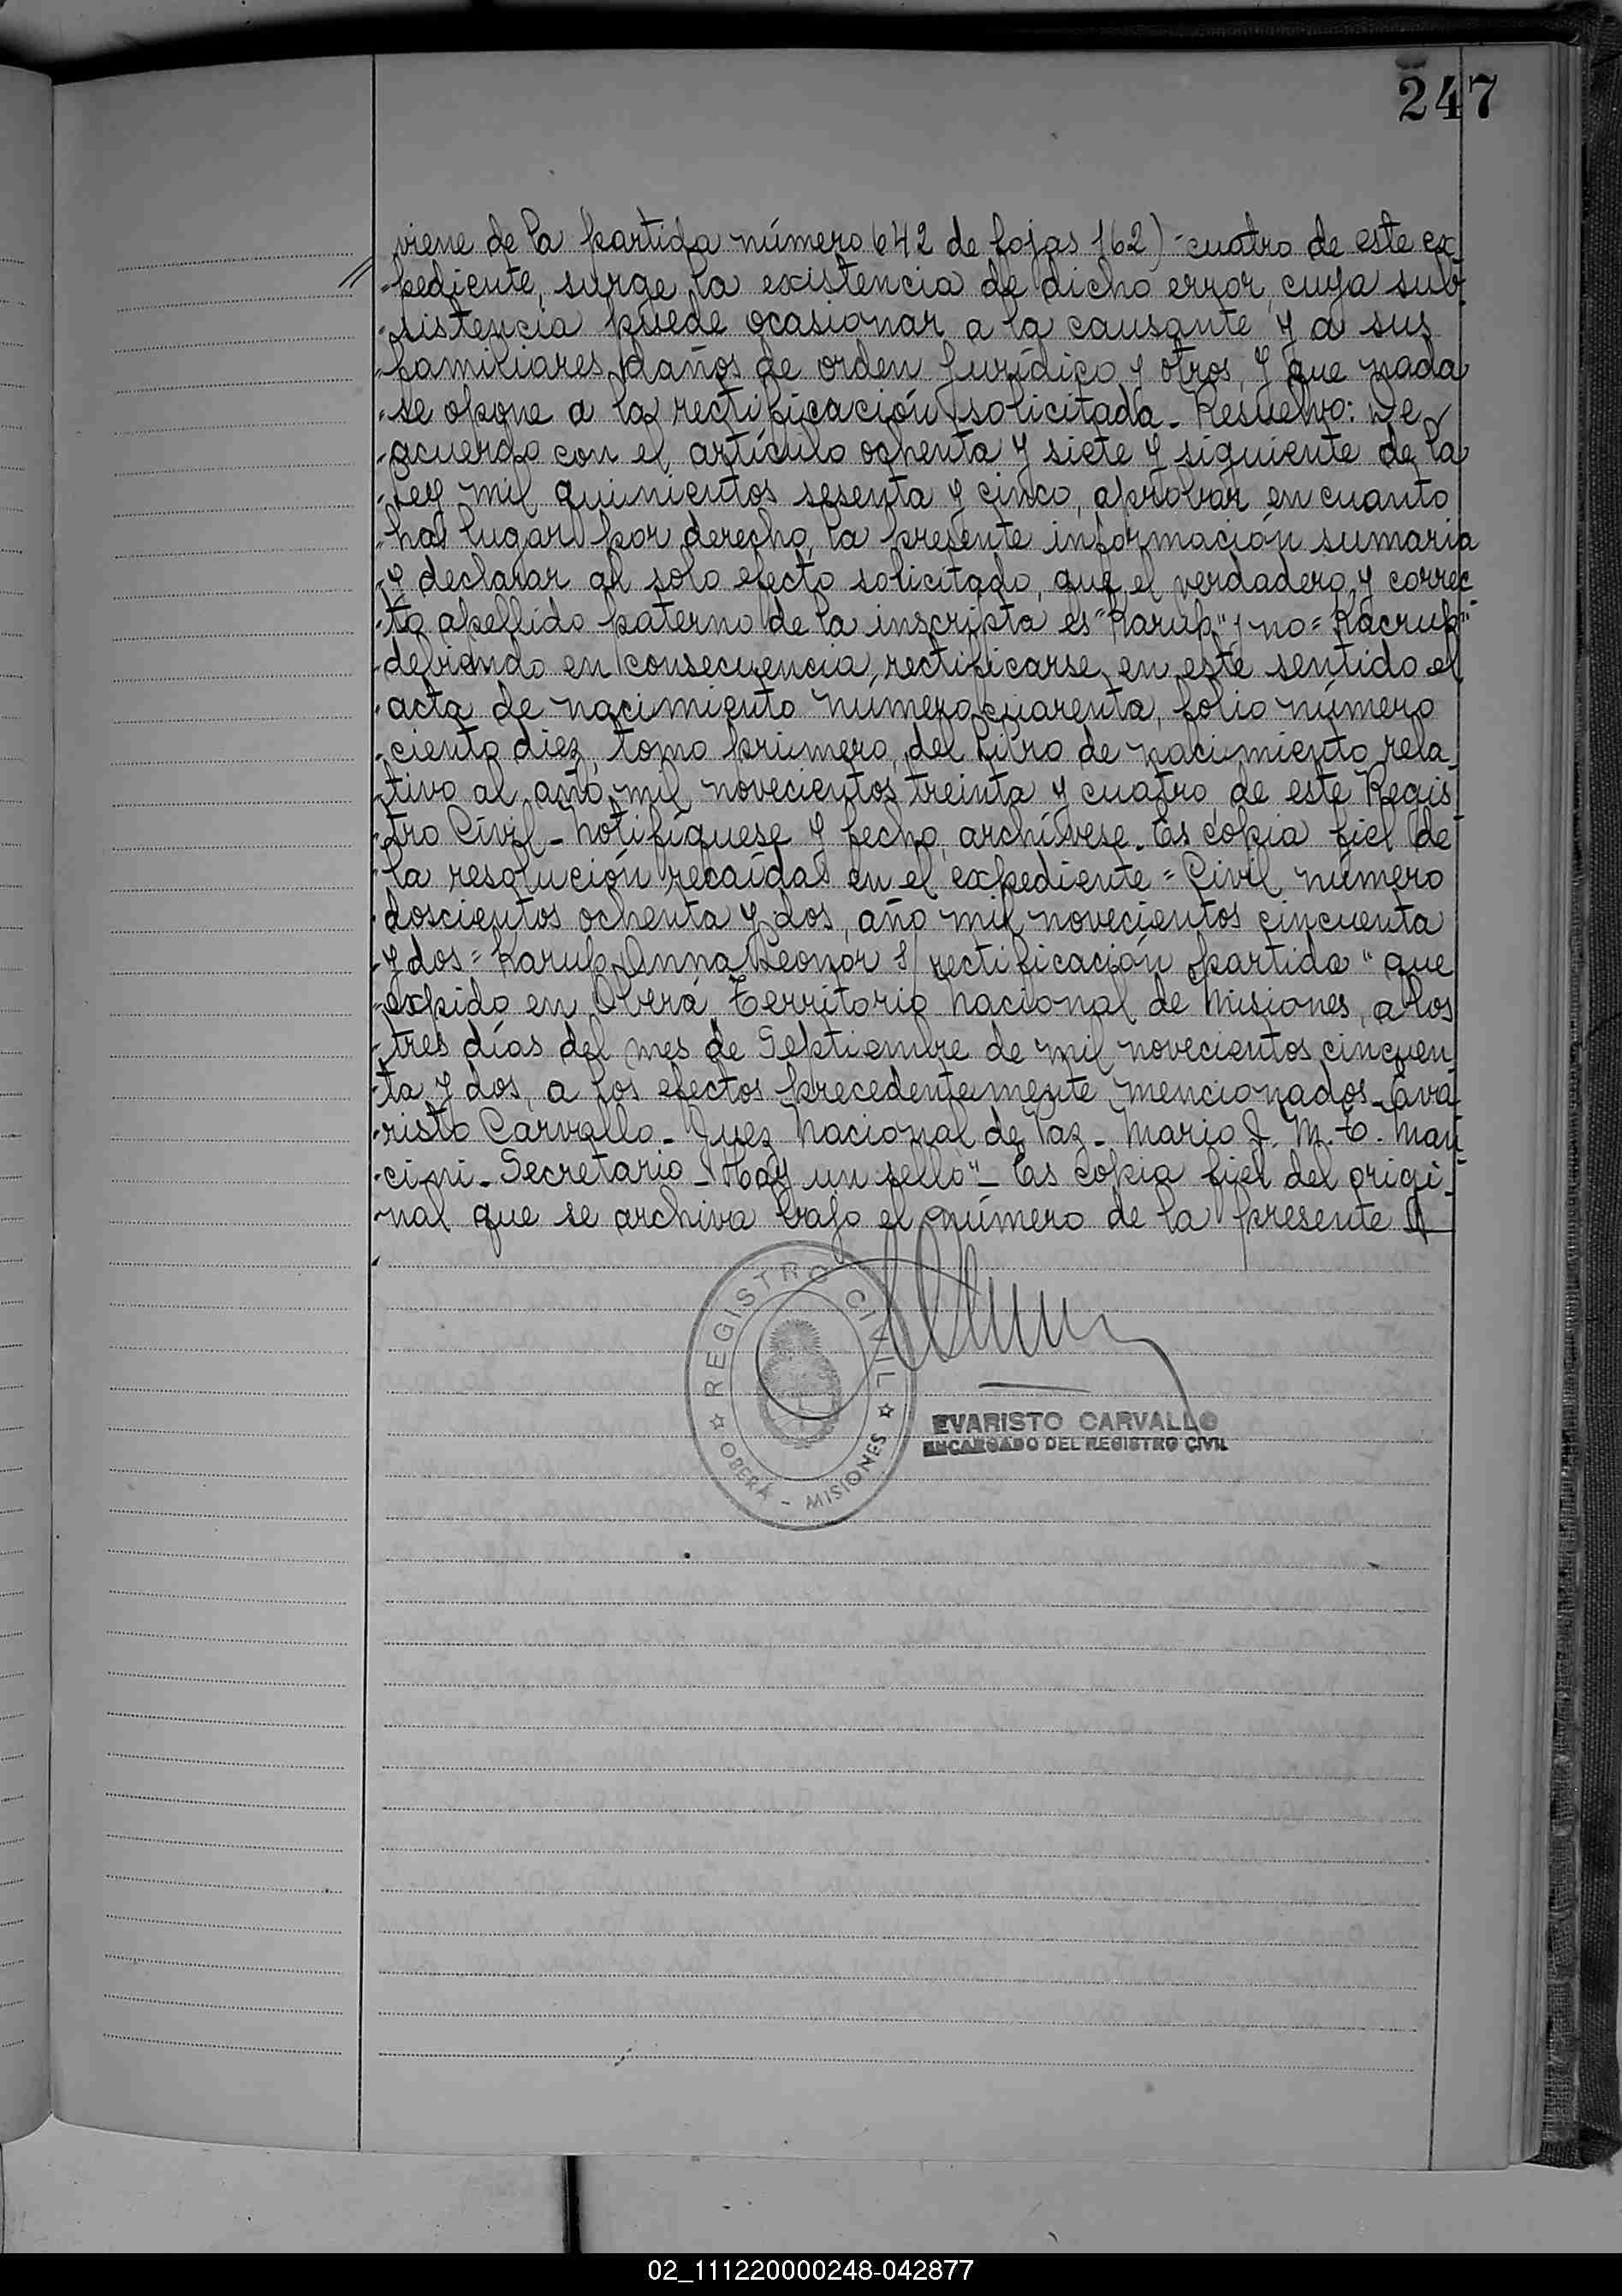 247
viene de la partida número 642 de fojas 162)-cuatro de este ex-
pediente, surge la existencia de dicho error, cuya sub-
sistencia puede ocasionar a la causante y a sus
familiares daños de orden jurídico y otros, y que nada
se opone a la rectificación solicitada_ Resuelvo: De
acuerdo con el artículo ochenta y siete y siguiente de la
Ley mil quinientos sesenta y cinco, aprobar en cuanto
ha lugar por derecho, la presente información sumaria
y declarar al solo efecto solicitado, que el verdadero y correc-
to apellido paterno de la inscripta es "Karup" y no "Kacrup"
debiendo en consecuencia, rectificarse en este sentido el
acta de nacimiento número cuarenta, folio número
ciento diez, tomo primero, del libro de nacimiento rela-
tivo al año mil novecientos treinta y cuatro de este Regis-
tro Civil_ Notifíquese y fecho, archívese_ Es copia fiel de
la resolución recaída en el expediente "Civil número
doscientos ochenta y dos, año mil novecientos cincuenta
y dos = Karup Anna Leonor s/ rectificación partida" que
expido en Oberá, Territorio Nacional de Misiones, a los
tres días del mes de Septiembre de mil novecientos cincuen-
ta y dos, a los efectos precedentemente mencionados_ Eva-
risto Carvallo_ Juez Nacional de Paz_ Mario J. M. E. Man-
cini_ Secretario_ Hay un sello"_ Es copia fiel del origi-
nal que se archiva bajo el número de la presente
REGISTRO CIVIL
OBERÁ - MISIONES
EVARISTO CARVALLO
ENCARGADO DEL REGISTRO CIVIL
02_111220000248-042877